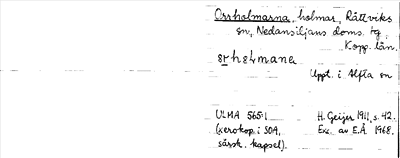 Orrholmarna, holmar, Rättviks
sn, Nedansiljans doms. tg,
Kopp. län.
Uppt. i Alfta sn
ULMA 565:1
H. Geijer 1911, s. 42.
(xerokop. i SOA,
Exc. av E.Å 1968.
särsk. kapsel).